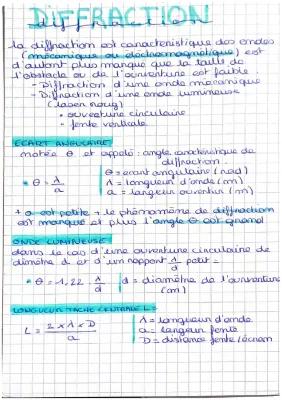 DIFFRACTION
la diffraction est caractéristique des ondes
(mécanique ou électromagnétique) est
d'autant plus marqué que la taille de
l'obstacle ou de l'ouverture est faible
- Diffraction d'une onde mécanique
- Diffraction d'une onde lumineuse
(laser rouge)
• ouverture circulaire
• fente verticale
ECART ANGULAIRE
notée θ et appelé : angle caractéristique de
diffraction.
• θ = λ/a
θ = écart angulaire (rad)
λ = longueur d'onde (m)
a = largeur ouverture (m)
+ a est petite + le phénomène de diffraction
est marqué et plus l'angle θ est grand
ONDE LUMINEUSE
dans le cas d'une ouverture circulaire de
diamètre d et d'un rapport λ/d petit =
• θ = 1,22 . λ/d
d = diamètre de l'ouverture
(m)
LONGUEUR TACHE CENTRALE L =
L = 2 x λ x D / a
λ = longueur d'onde
a = largeur fente
D = distance fente/écran